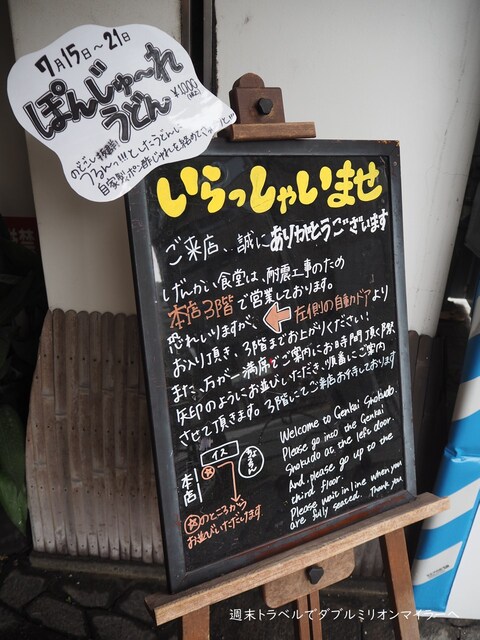 7月15日～21日
ぽんじゅ～れ
うどん
¥1,000
のどごし抜群!
うるんっ!!!としたうどんに
自家製ポン酢じゅれを絡めてサッパリと!!!
いらっしゃいませ
ご来店、誠にありがとうございます
げんかい食堂は、耐震工事のため
本店3階で営業しております。
恐れいりますが、←左側の自動ドアより
お入り頂き、3階までお上がりください!
また、万が一満席でご案内にお時間頂く際
矢印のようにお並びいただき、順番にご案内
させて頂きます。3階にてご来店お待ちしております
イス
本店
☆のところから
お並びいただけます
Welcome to Genkai Shokudo.
Please go into the Genkai
Shokudo at the left door.
And, please go up to the
third floor.
Please wait in line when you
are fully seated. Thank you
週末トラベルでダブルミリオンマイラーへ